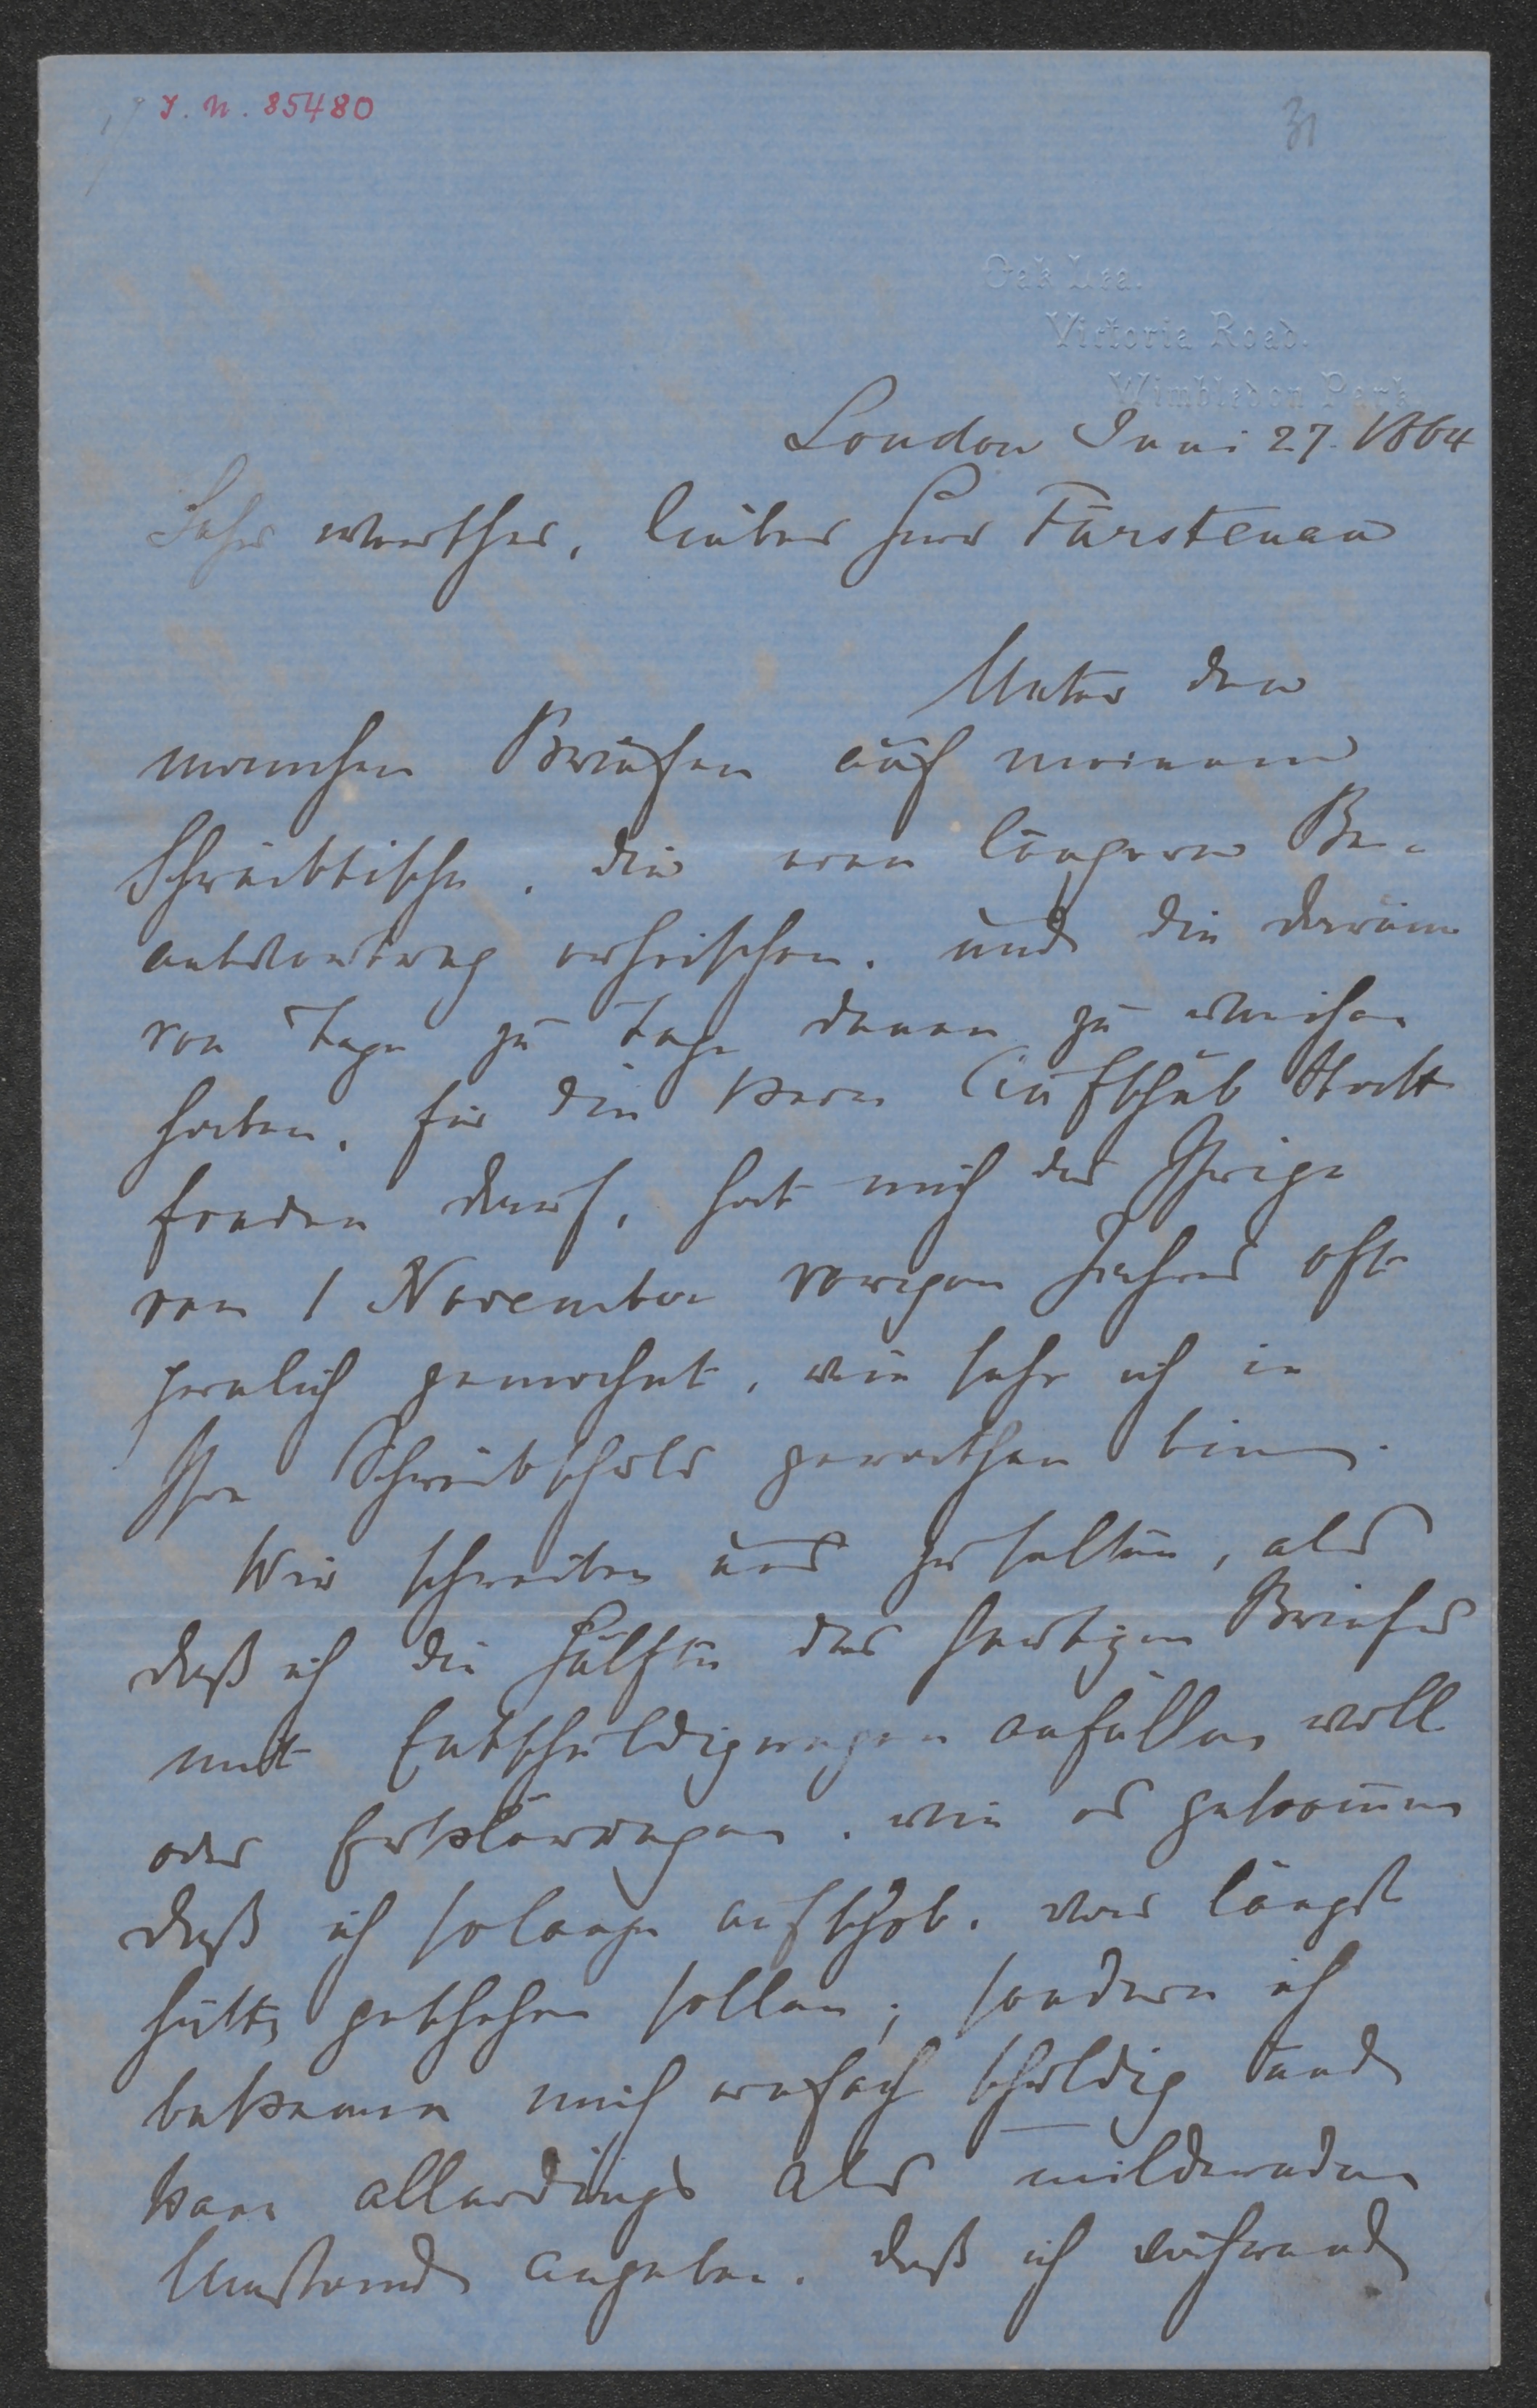 I. N. 85480
31
Oak Lea.
Victoria Road.
Wimbledon Park.
London Juni 27. 1864
Sehr werther, lieber Herr Fürstenau
Unter den
manchen Briefen auf meinem
Schreibtische, die eine längere Be-
antwortung erheischen, und die darum
von Tage zu Tage denen zu weichen
haben, für die kein Aufschub Statt
finden darf, hat mich der Ihrige
vom 1 November vorigen Jahres oft
peinlich gemahnt, wie sehr ich in
Ihre Schreibschuld gerathen bin.
Wir schreiben uns zu selten, als
daß ich die Hälfte des heutigen Briefes
mit Entschuldigungen anfüllen will
oder Erklärungen, wie es gekommen
daß ich solange aufschob, was längst
hätte geschehen sollen; sondern ich
bekenne mich einfach schuldig und
kann allerdings als mildernden
Umstand angeben, daß ich während